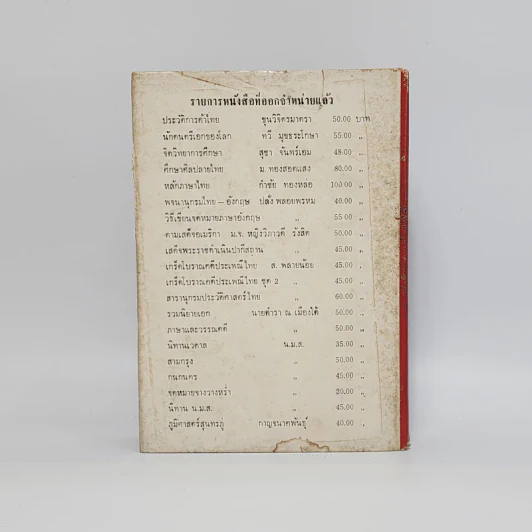 รายการหนังสือที่ออกจำหน่ายแล้ว
ประวัติการค้าไทย ขุนวิจิตรมาตรา 50.00 บาท
นักดนตรีเอกของโลก ทวี มุขธระโกษา 55.00 ,,
จิตวิทยาการศึกษา สุชา จันทร์เอม 48.00 ,,
ศึกษาศิลปลายไทย ม. ทองสอดแสง 80.00 ,,
หลักภาษาไทย กำชัย ทองหล่อ 100.00 ,,
พจนานุกรมไทย – อังกฤษ ปลั่ง พลอยพรหม 40.00 ,,
วิธีเขียนจดหมายภาษาอังกฤษ ,, 55.00 ,,
ตามเสด็จอเมริกา ม.จ. หญิงวิภาวดี รังสิต 50.00 ,,
เสด็จพระราชดำเนินปากีสถาน ,, 45.00 ,,
เกร็ดโบราณคดีประเพณีไทย ส. พลายน้อย 45.00 ,
เกร็ดโบราณคดีประเพณีไทย ชุด 2 ,, 45.00 ,,
สารานุกรมประวัติศาสตร์ไทย ,, 60.00 ,,
รวมนิยายเอก นายตำรา ณ เมืองใต้ 50.00 ,,
ภาษาและวรรณคดี ,, 50.00 ,,
นิทานเวตาล น.ม.ส. 35.00 ,,
สามกรุง ,, 50.00 ,,
กนกนคร ,, 45.00 ,,
จดหมายจางวางหร่ำ ,, 20.00 ,,
นิทาน น.ม.ส. ,, 45.00 ,,
ภูมิศาสตร์สุนทรภู่ กาญจนาคพันธุ์ 40.00 ,